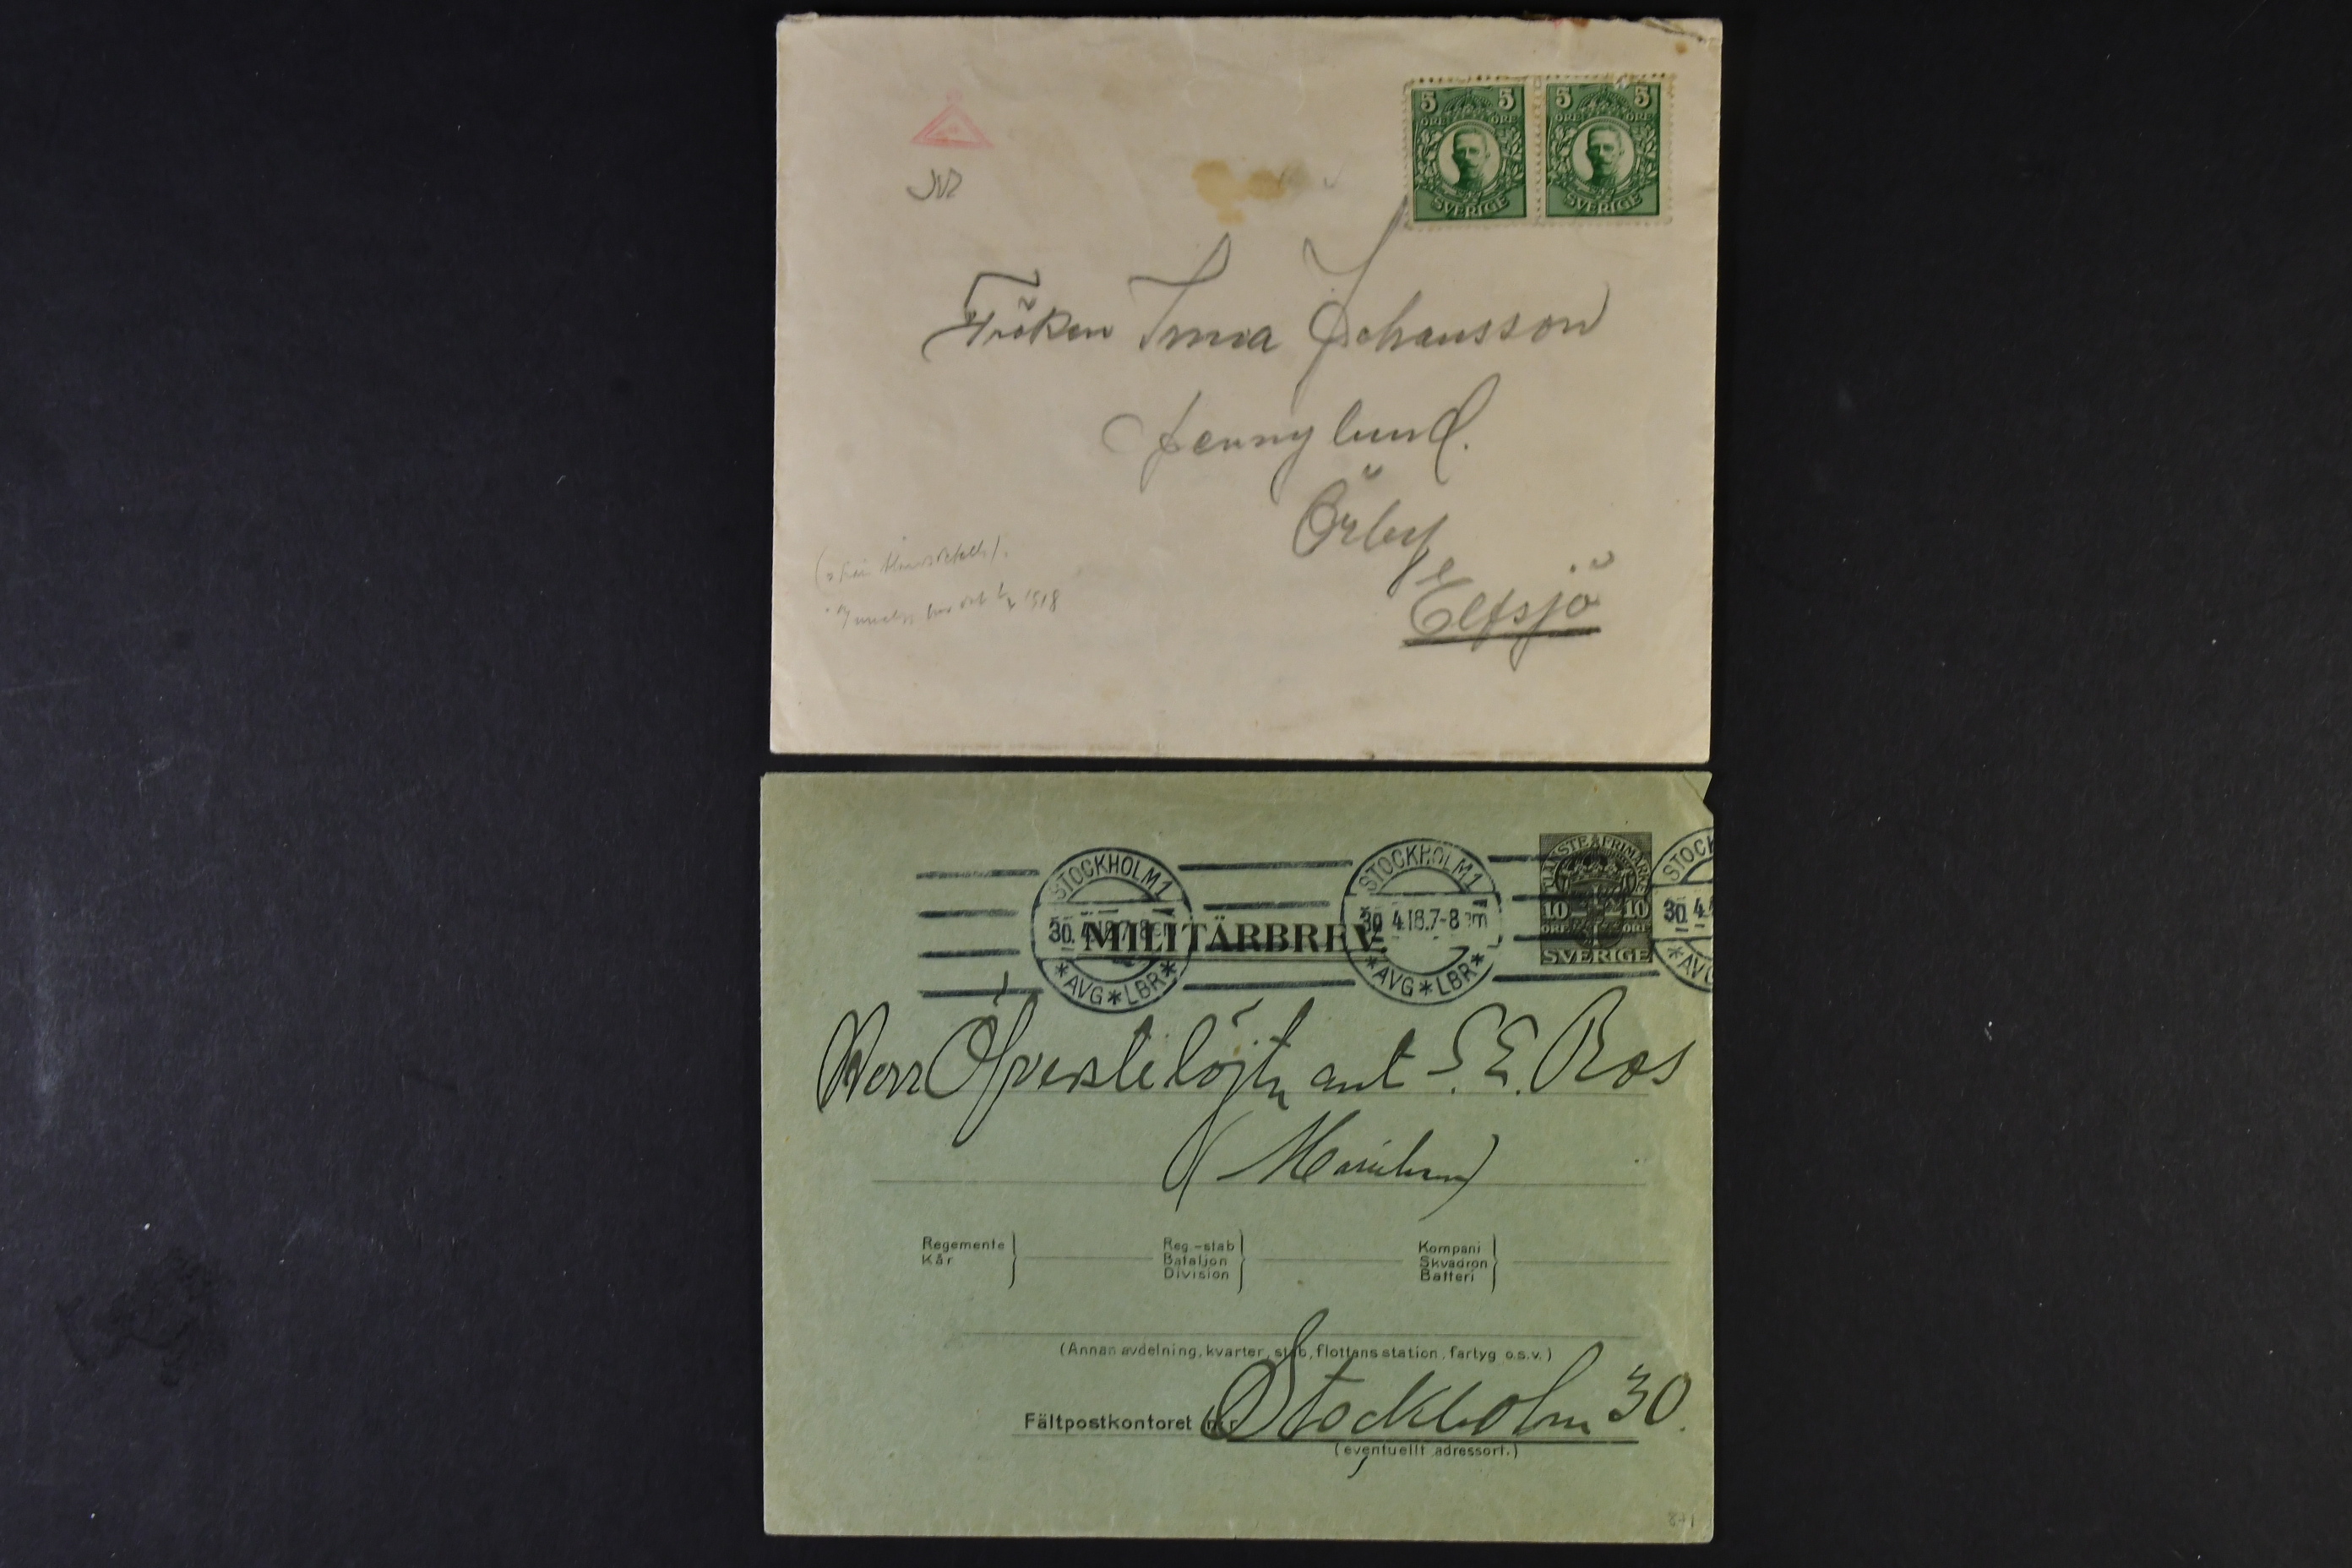 5 5
ÖRE ÖRE
SVERIGE
5 5
ÖRE ÖRE
SVERIGE
Fröken Irma Johansson
Jennylund.
Örby
Elfsjö
1918
STOCKHOLM 1
30.4.18.7-8 em
*AVG*LBR*
STOCKHOLM 1
30.4.18.7-8 em
*AVG*LBR*
STOCK
30.4.
*AVG
TJÄNSTEFRIMÄRKE
10 10
ÖRE ÖRE
SVERIGE
MILITÄRBREV.
Herr Öfverstelöjtnant S.E. Ros
Regemente
Kår
Reg.-stab
Bataljon
Division
Kompani
Skvadron
Batteri
(Annan avdelning, kvarter, stab, flottans station, fartyg o.s.v.)
Fältpostkontoret n:r Stockholm 30.
(eventuellt adressort.)
871